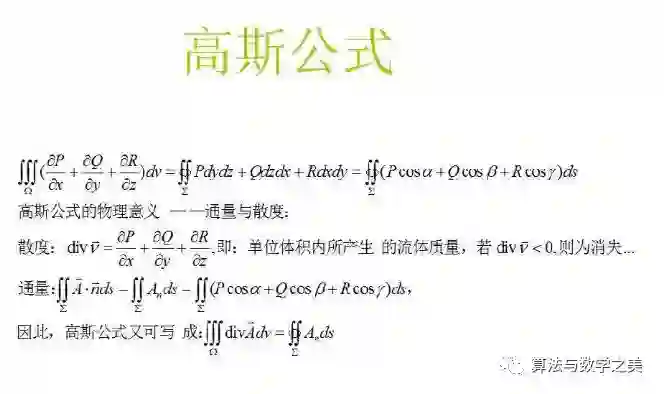 高斯公式
∭_Ω(∂P/∂x+∂Q/∂y+∂R/∂z)dv=∯_Σ Pdydz+Qdzdx+Rdxdy=∯_Σ(Pcosα+Qcosβ+Rcosγ)ds
高斯公式的物理意义 ——通量与散度:
散度: div v⃗=∂P/∂x+∂Q/∂y+∂R/∂z,即: 单位体积内所产生 的流体质量, 若div v⃗<0,则为消失...
通量:∬_Σ A⃗·n⃗ds−∬_Σ Aₙds−∬_Σ(Pcosα+Qcosβ+Rcosγ)ds,
因此, 高斯公式又可写 成:∭_Ω divA⃗dv=∯_Σ Aₙds
算法与数学之美